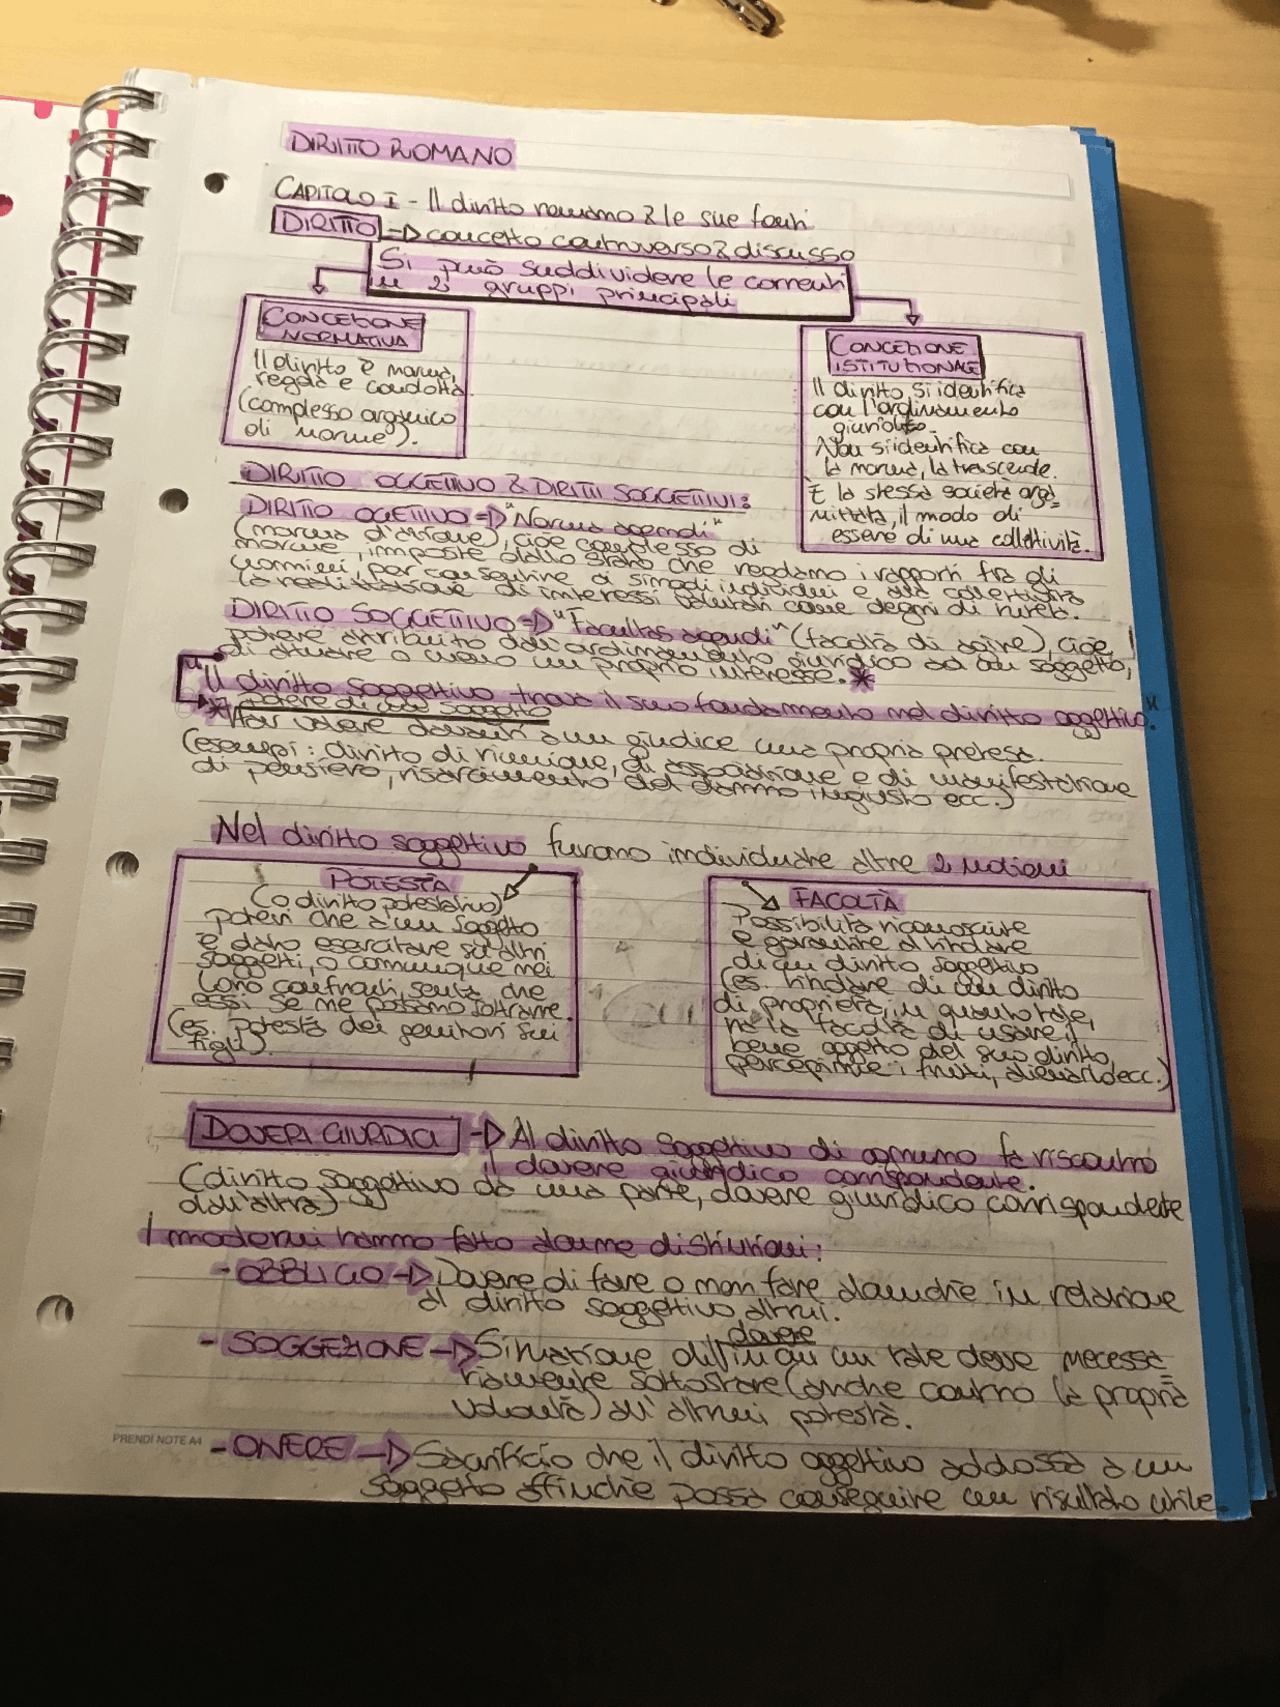 DIRITTO ROMANO
CAPITOLO I - Il diritto romano & le sue fonti
DIRITTO -> concetto controverso & discusso
Si può suddividere le correnti
in 2 gruppi principali
CONCEZIONE
NORMATIVA
Il diritto è norma,
regola e condotta
(complesso organico
di norme).
CONCEZIONE
ISTITUZIONALE
Il diritto si identifica
con l'ordinamento
giuridico.
Non si identifica con
la norma, la trascende.
È la stessa società orga=
nizzata, il modo di
essere di una collettività.
DIRITTO OGGETTIVO & DIRITTI SOGGETTIVI:
DIRITTO OGETTIVO => "Norma agendi"
(norma d'azione), cioè complesso di
norme, imposte dallo stato che regolano i rapporti fra gli
uomini, per consentire ai singoli individui e alla collettività
la realizzazione di interessi valutati come degni di tutela.
DIRITTO SOGGETTIVO => "Facultas agendi" (facoltà di agire), cioè
potere attribuito dall'ordinamento giuridico ad un soggetto,
di attuare o meno un proprio interesse. *
"Il diritto soggettivo trova il suo fondamento nel diritto oggettivo."
* potere di un soggetto
far valere davanti a un giudice una propria pretesa.
(esempi: diritto di riunione, di associazione e di manifestazione
di pensiero, risarcimento del danno ingiusto ecc.)
Nel diritto soggettivo furono individuate altre 2 nozioni
POTESTÀ
(o diritto potestativo)
poteri che a un soggetto
è dato esercitare su altri
soggetti, o comunque nei
loro confronti, senza che
essi se ne possano sottrarre.
(es. potestà dei genitori sui
figli).
FACOLTÀ
Possibilità riconosciute
e garantite al titolare
di un diritto soggettivo
(es. titolare di un diritto
di proprietà, in quanto tale,
ha la facoltà di usare il
bene oggetto del suo diritto,
percepirne i frutti, alienarlo ecc.)
DOVERI GIURIDICI -> Al diritto soggettivo di ognuno fa riscontro
il dovere giuridico corrispondente.
(diritto soggettivo da una parte, dovere giuridico corrispondente
dall'altra)
I moderni hanno fatto alcune distinzioni:
- OBBLIGO -> Dovere di fare o non fare alcunché in relazione
al diritto soggettivo altrui.
dovere
- SOGGEZIONE -> Situazione di in cui un tale deve necessa=
riamente sottostare (anche contro la propria
volontà) all'altrui potestà.
- ONERE -> Sacrificio che il diritto oggettivo addossa a un
soggetto affinché possa conseguire un risultato utile.
PRENDI NOTE A4